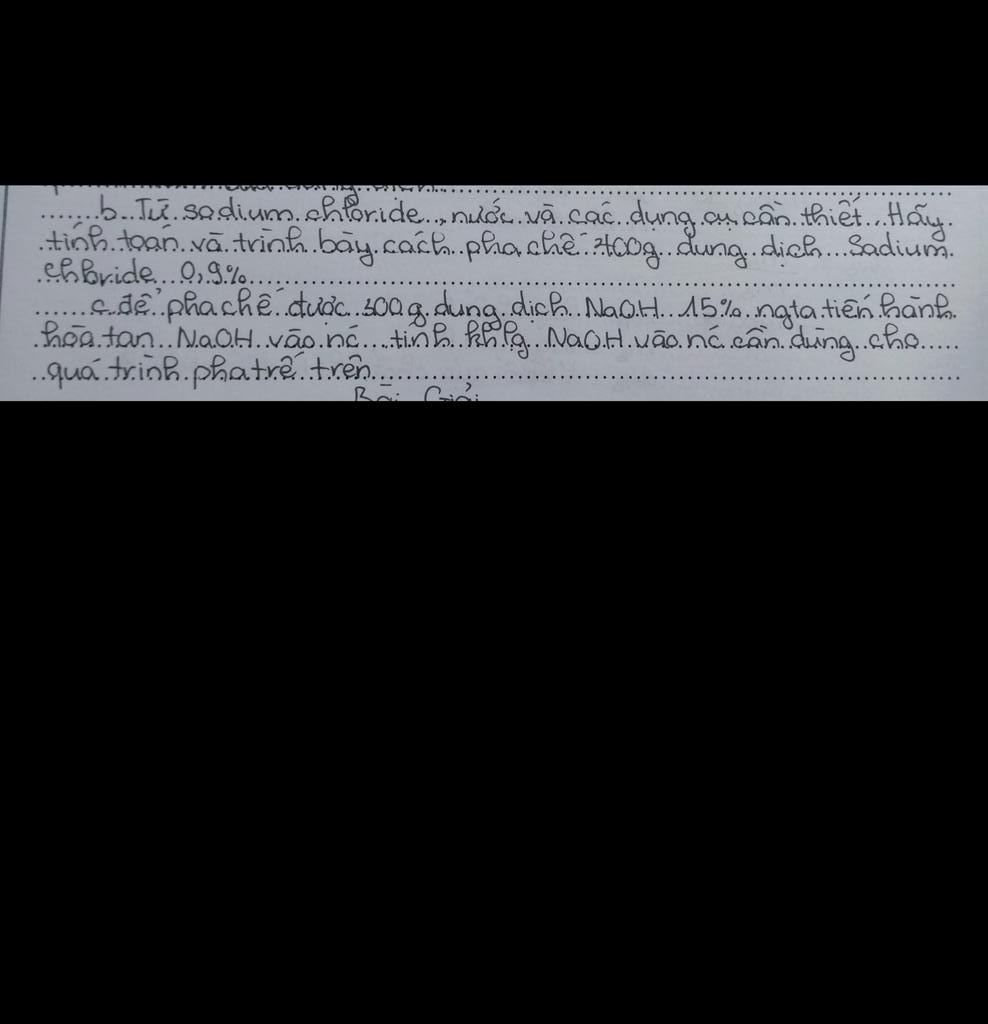 b. Từ sodium chloride, nước và các dụng cụ cần thiết. Hãy
tính toán và trình bày cách pha chế 400g dung dịch Sadium
chloride 0,9%
c. để pha chế được 300g dung dịch NaOH 15% ngta tiến hành
hòa tan NaOH vào nc tính khlg NaOH vào nc cần dùng cho
quá trình pha trế trên
Bài Giải